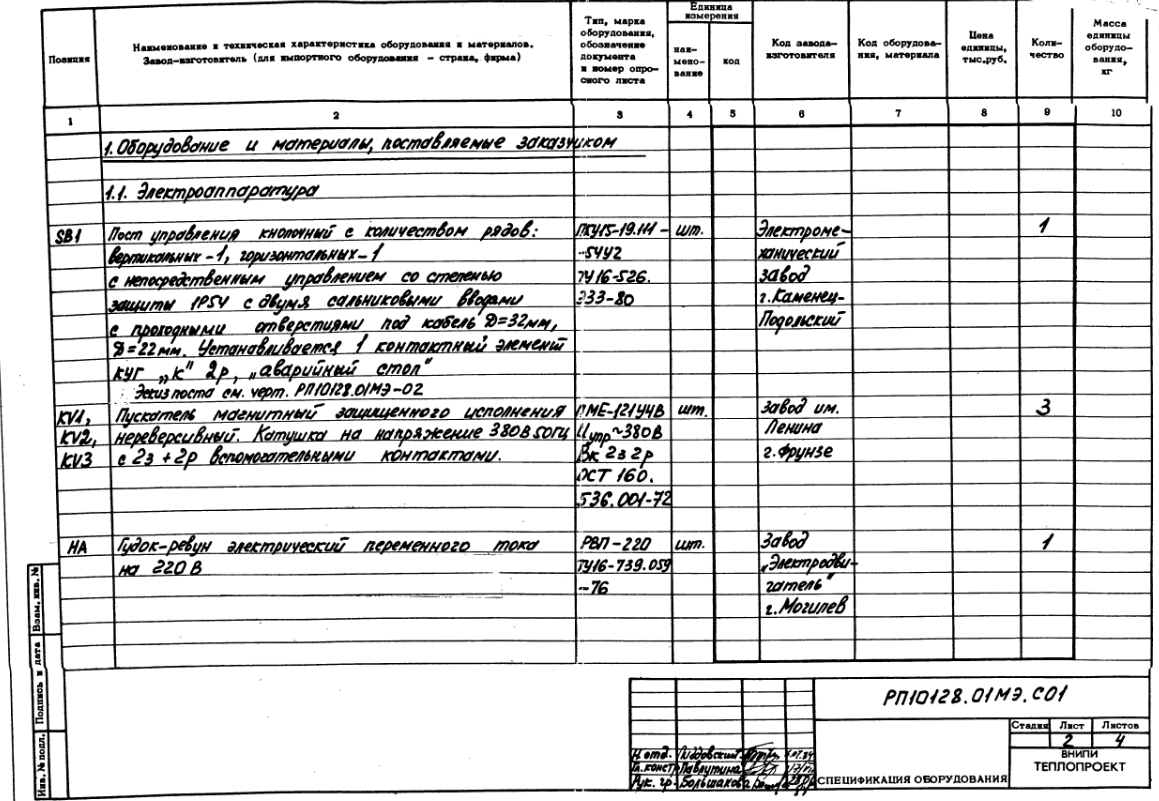 Позиция
Наименование и техническая характеристика оборудования и материалов.
Завод-изготовитель (для импортного оборудования - страна, фирма)
Тип, марка
оборудования,
обозначение
документа
и номер опро-
сного листа
Единица
измерения
наи-
мено-
вание
код
Код завода-
изготовителя
Код оборудова-
ния, материала
Цена
единицы,
тыс.руб.
Коли-
чество
Масса
единицы
оборудо-
вания,
кг
1 2 3 4 5 6 7 8 9 10
1. Оборудование и материалы, поставляемые заказчиком
1.1. Электроаппаратура
SB1 Пост управления кнопочный с количеством рядов: ПКУ15-19.111- шт. Электроме- 1
вертикальных-1, горизонтальных-1 -54У2 ханический
с непосредственным управлением со степенью ТУ16-526. завод
защиты IP54 с двумя сальниковыми вводами 333-80 г.Каменец-
с проходными отверстиями под кабель D=32мм, Подольский
D=22мм. Устанавливается 1 контактный элемент
КУГ „К" 2р, „аварийный стоп"
Эскиз поста см. черт. РП10128.01МЭ-02
KV1, Пускатель магнитный защищенного исполнения ПМЕ-121У4В шт. Завод им. 3
KV2, нереверсивный. Катушка на напряжение 380В 50Гц Uупр~380В Ленина
KV3 с 2з+2р вспомогательными контактами. Вк 2з 2р г.Фрунзе
ОСТ 160.
536.001-72
НА Гудок-ревун электрический переменного тока РВП-220 шт. Завод 1
на 220 В ТУ16-739.059 „Электродви-
-76 гатель"
г.Могилев
Взам. инв. №
Подпись и дата
Инв. № подл.
РП10128.01МЭ.С01
Стадия Лист Листов
2 4
Н.отд.
Гл.констр Павлутина
Рук. гр. Большакова
СПЕЦИФИКАЦИЯ ОБОРУДОВАНИЯ
ВНИПИ
ТЕПЛОПРОЕКТ